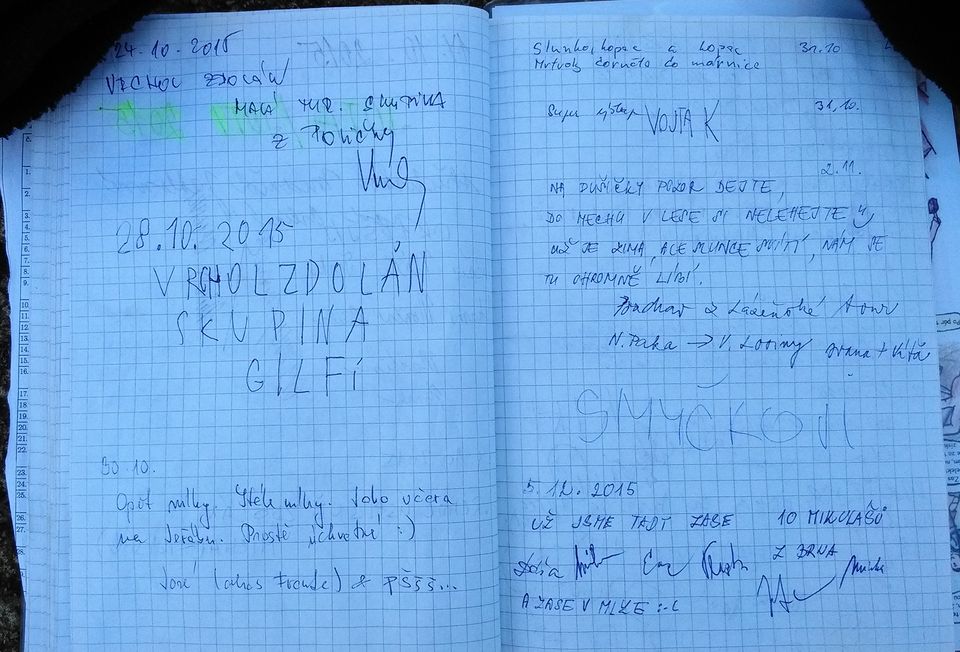 24.10.2015
VRCHOL ZDOLÁN
MALÁ TUR. SKUPINA
Z POLIČKY
28.10. 2015
VRCHOL ZDOLÁN
SKUPINA
GILFÍ
30.10.
Opět mlhy. Stále mlhy. Jako včera
na Jeřábu. Prostě úchvatné :)
José (alias Franta) & pššš...
Slunko, kopec a kopec 31.10
Mrtvoly čerňáta do márnice
Super výstup VOJTA K 31.10.
2.11.
NA DUŠIČKY POZOR DEJTE,
DO MECHU V LESE SI NELEHEJTE,
UŽ JE ZIMA, ALE SLUNCE SVÍTÍ, NÁM SE
TU OHROMNĚ LÍBÍ.
Pozdrav z Lázeňské tour
N. Paka → V. Losiny
SMYČKOVI
5.12.2015
UŽ JSME TADY ZASE 10 MIKULÁŠŮ
Z BRNA
A ZASE V MLZE :-(